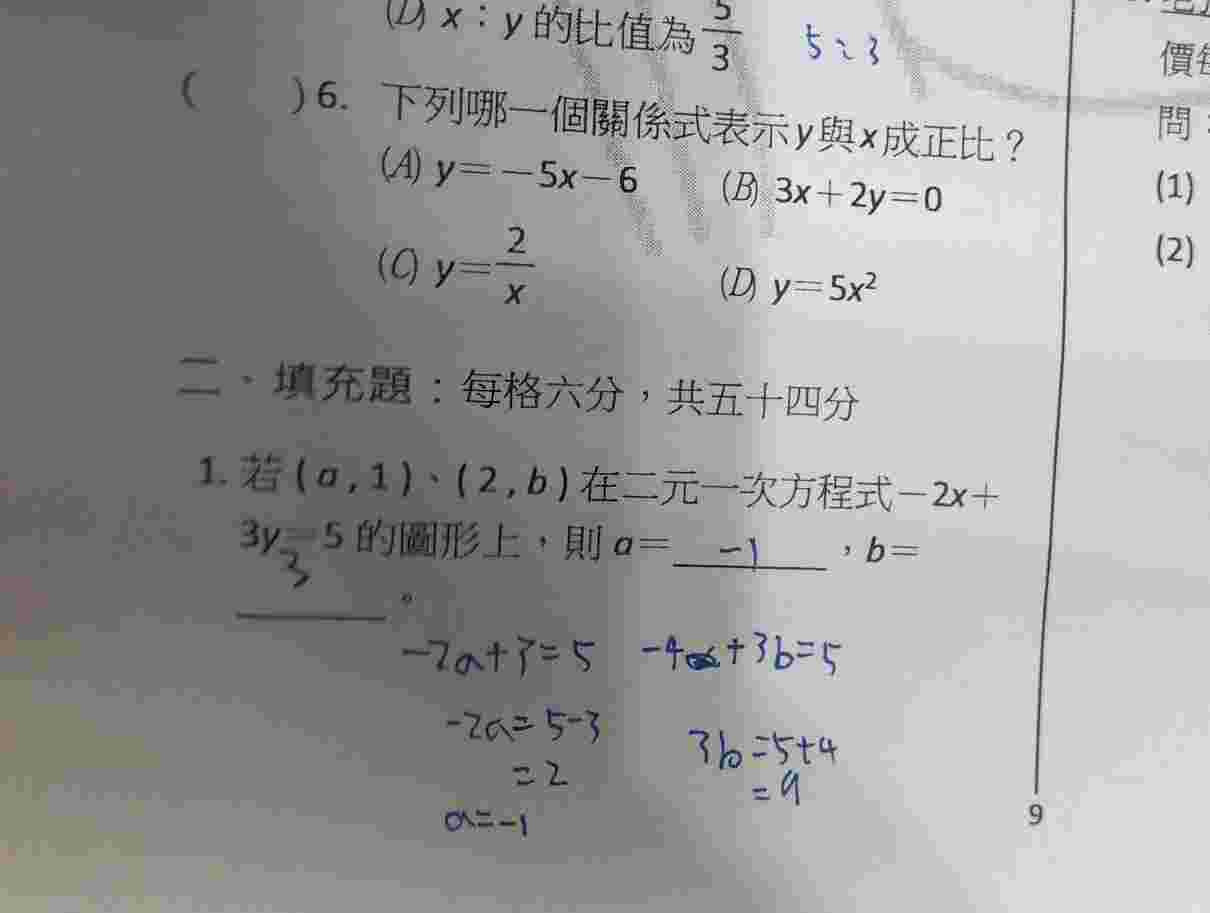 (D) x：y 的比值為 5/3 5:3
( )6. 下列哪一個關係式表示y與x成正比？
(A) y=－5x－6 (B) 3x＋2y=0
(C) y=2/x (D) y=5x²
二、填充題：每格六分，共五十四分
1. 若(a,1)、(2,b)在二元一次方程式－2x＋
3y=5 的圖形上，則 a= -1 ，b=
3 。
-2a+3=5 -4+3b=5
-2a=5-3 3b=5+4
=2 =9
a=-1
9
問：
(1)
(2)